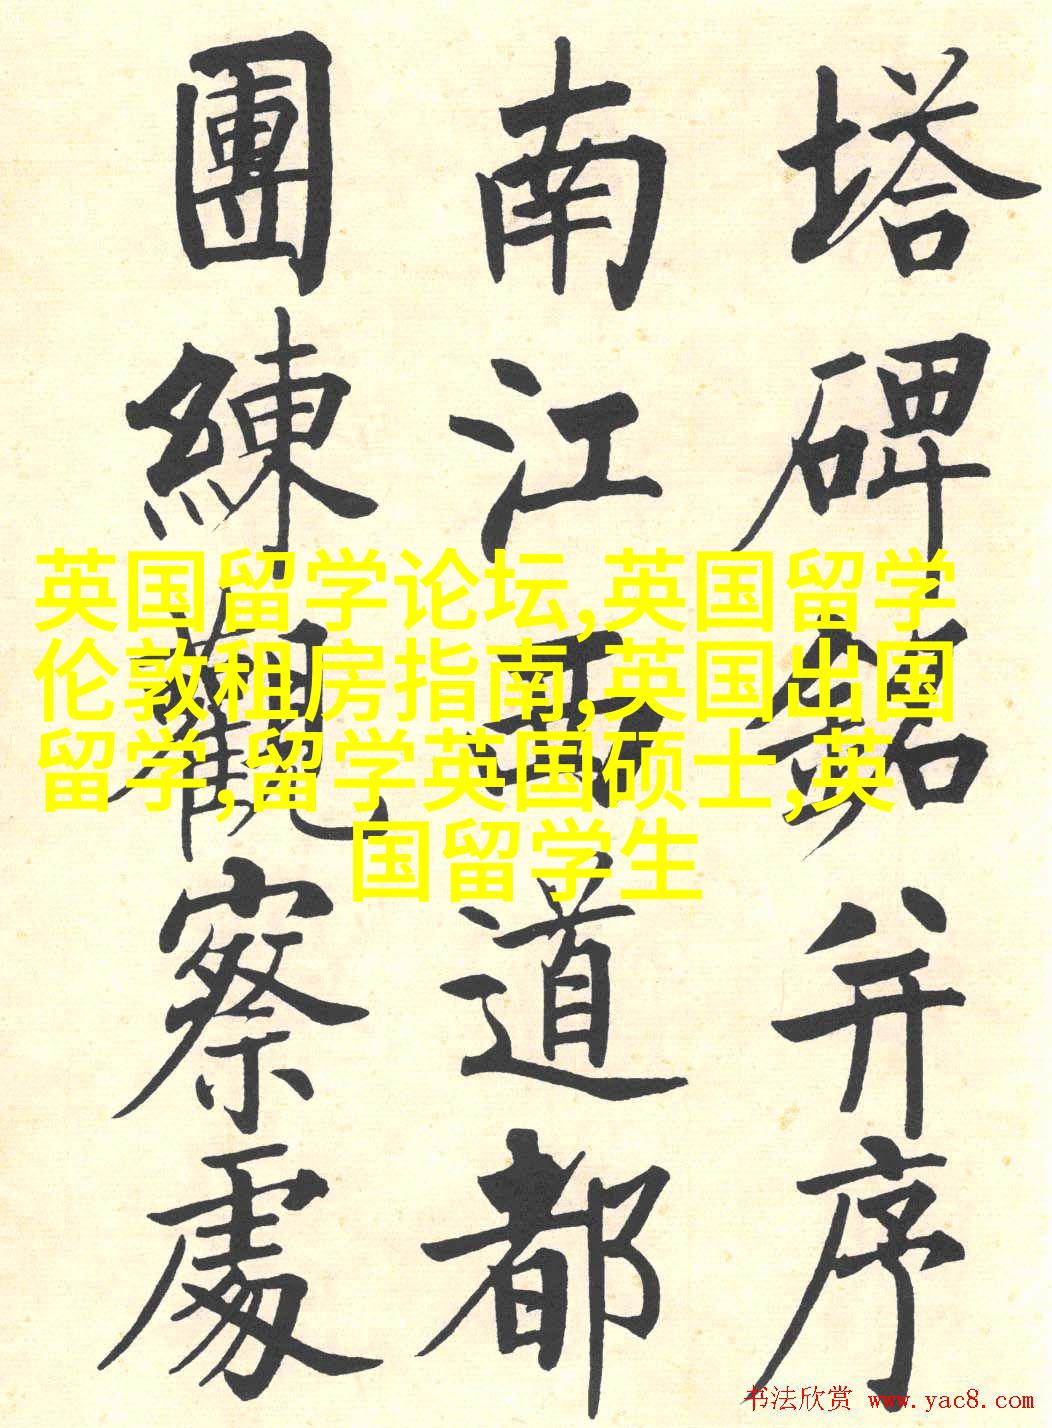 塔碑銘并序
南江西道都
團練觀察處
英国留学论坛,英国留学
伦敦租房指南,英国出国
留学,留学英国硕士,英
国留学生
书法欣赏 www.yac8.com